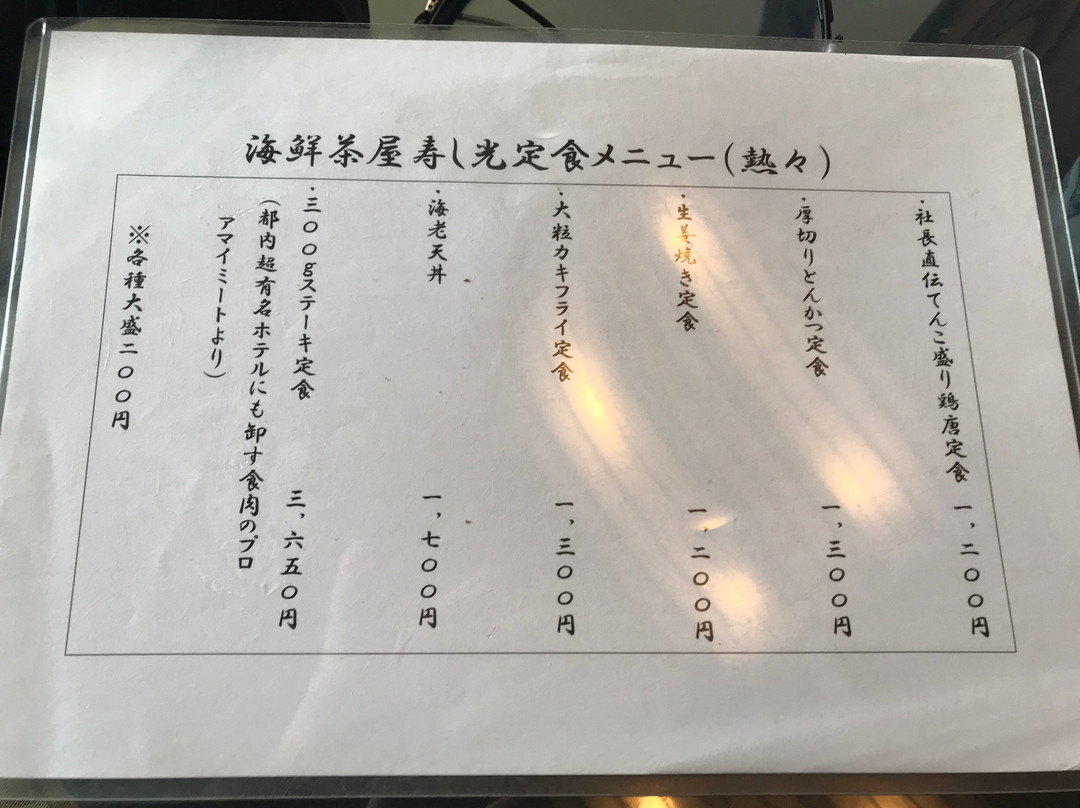 海鮮茶屋寿し光定食メニュー(熱々)
・社長直伝てんこ盛り鶏唐定食 一,二〇〇円
・厚切りとんかつ定食 一,三〇〇円
・生姜焼き定食 一,二〇〇円
・大粒カキフライ定食 一,三〇〇円
・海老天丼 一,七〇〇円
・三〇〇gステーキ定食 三,六五〇円
(都内超有名ホテルにも卸す食肉のプロ
アマイミートより)
※各種大盛二〇〇円